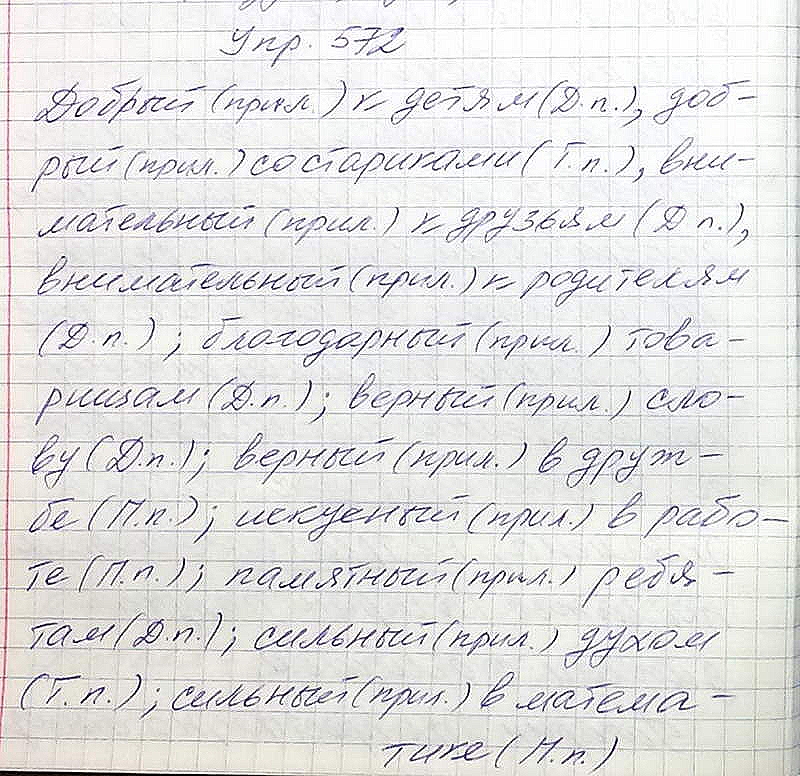 Упр. 572
Добрый (прил.) к детям (Д.п.), доб-
рый (прил.) со стариками (Т.п.), вни-
мательный (прил.) к друзьям (Д.п.),
внимательный (прил.) к родителям
(Д.п.); благодарный (прил.) това-
рищам (Д.п.); верный (прил.) сло-
ву (Д.п.); верный (прил.) в друж-
бе (П.п.); искусный (прил.) в рабо-
те (П.п.); памятный (прил.) ребя-
там (Д.п.); сильный (прил.) духом
(Т.п.); сильный (прил.) в матема-
тике (П.п.)